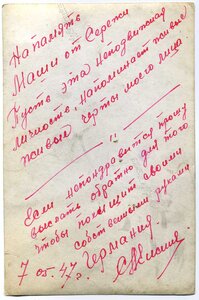 На память
Маши от Сережи
Пусть эта неподвижная
личность напоминает живые
живыи черты моего лица
"
Если непондравится прошу
выслать обратно для того
чтобы похищит своими
собствеными руками
7 05. 47 г. Германия